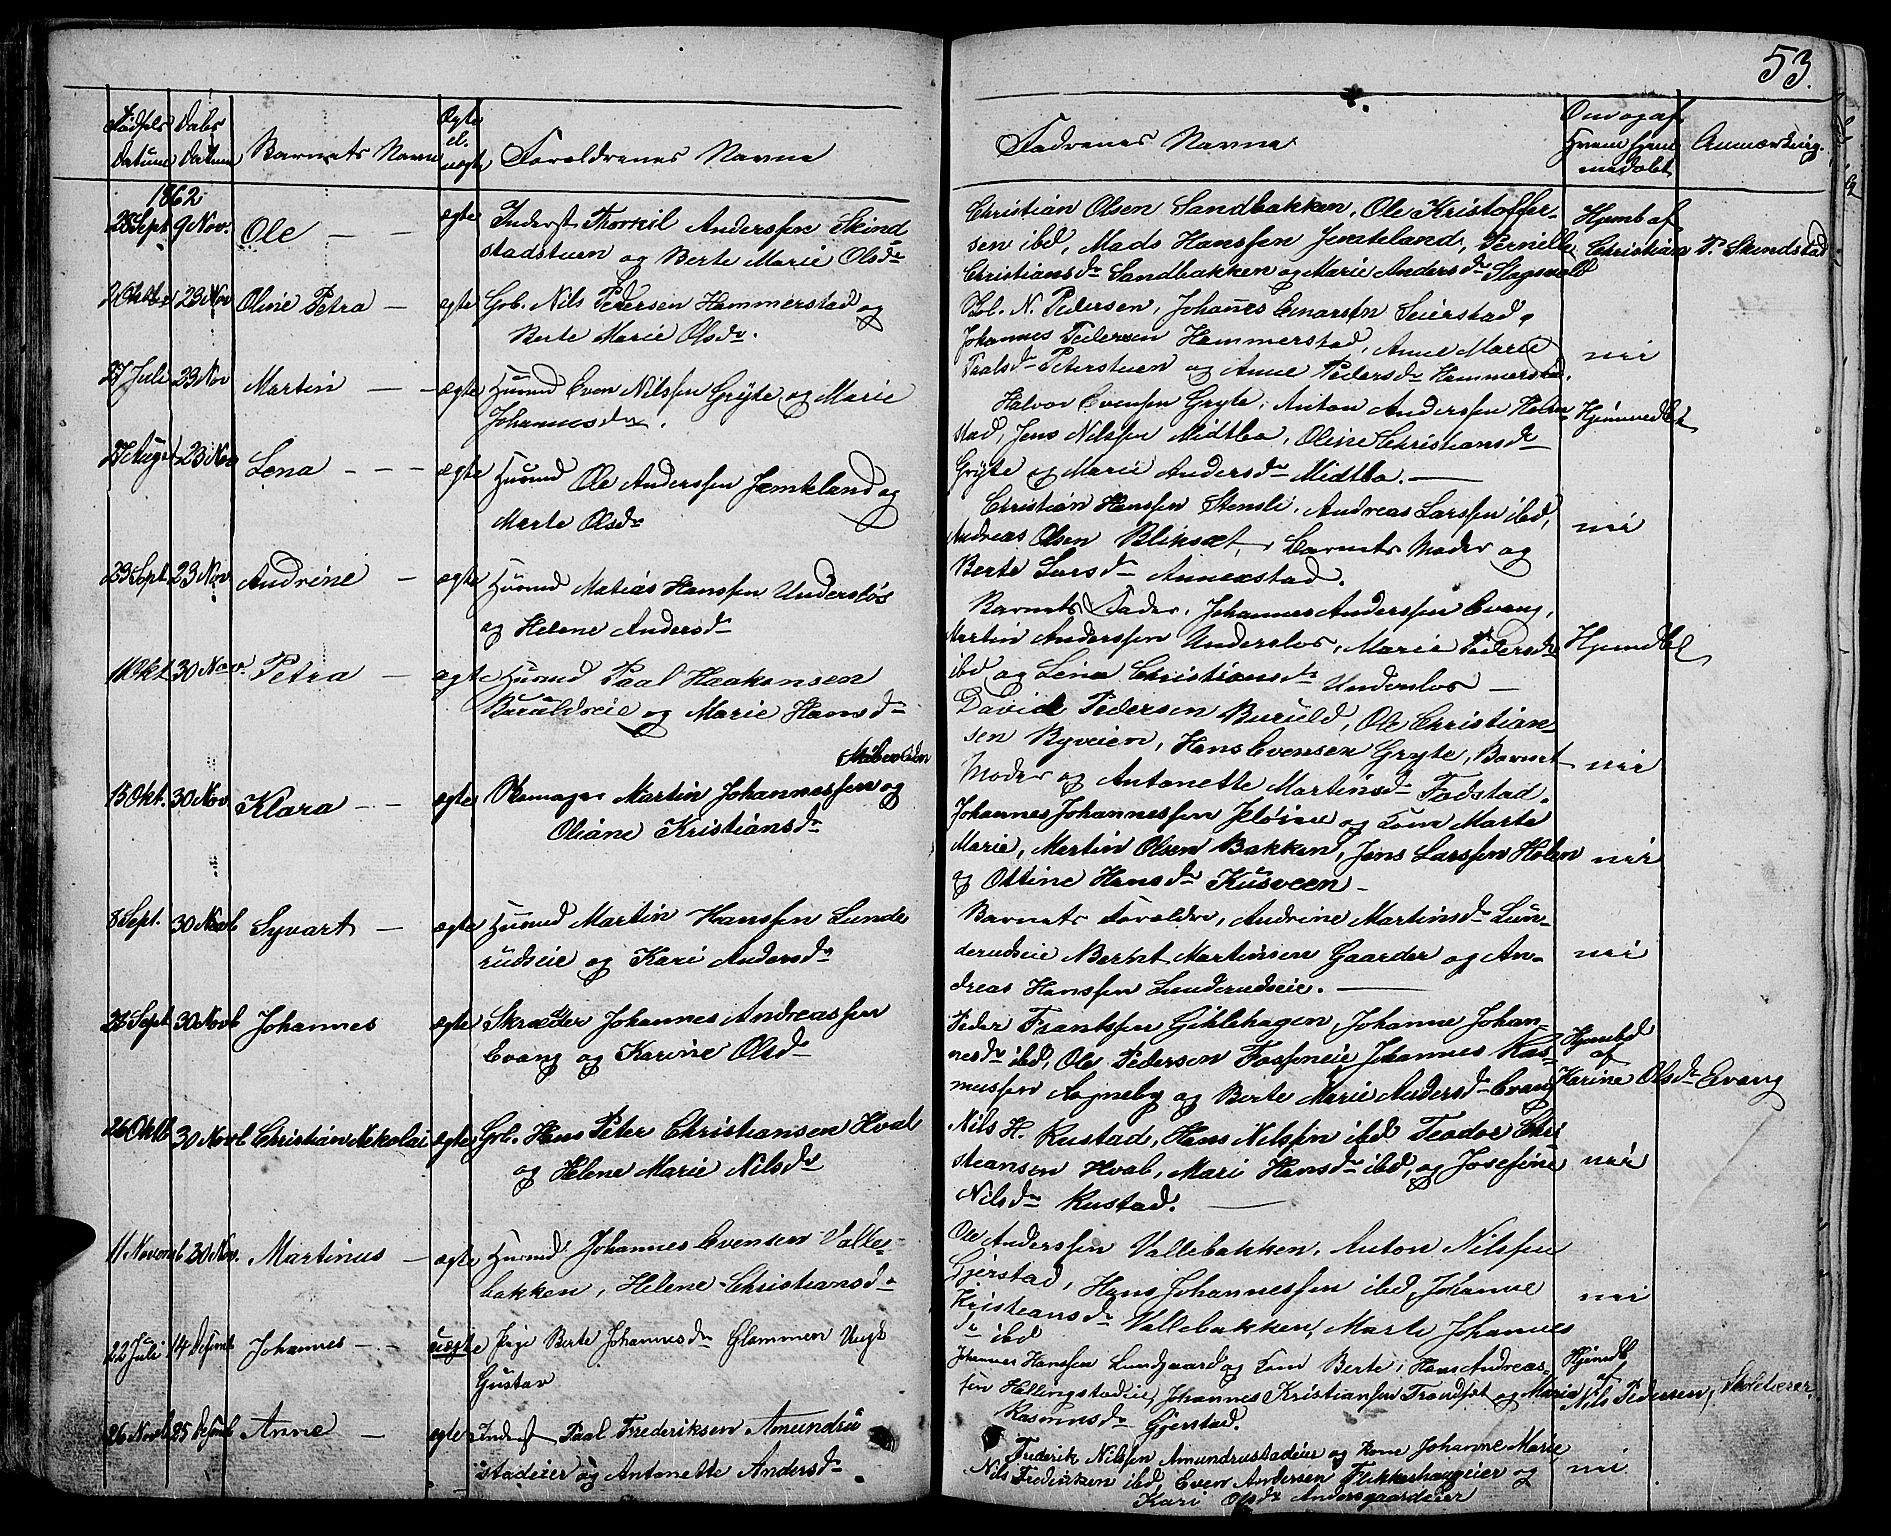 53.
Fødsels Datum
Daabs Datum
Barnets Navn
Ægte el. uægte
Forældrenes Navne
Faddrenes Navne
Om og af hvem hjemmedøbt
Anmærkning.
1862
28 Sept 9 Nov. Ole — — ægte Inderst Thorkil Anderssen Skind
stadstuen og Berte Marie Olsdr
Christian Olsen Sandbakken, Ole Kristoffer-
sen ibd, Mads Hanssen Jemteland, Pernille
Christiansdr Sandbakken og Marie Andersdr Slagsvold
Hjemb af
Christian P. Skindstad
2 Oktbr 23 Nov Oline Petra — ægte Gb. Nils Pedersen Hammerstad og
Berte Marie Olsdr.
N. Pedersen, Johannes Seierstad,
Johannes Pedersen Hammerstad, Anne Marie
Paalsdr Peterstuen og Anne Pedersdr Hammerstad.
nei
27 Juli 23 Nov Martin — — ægte Husmd Even Nilssen Gryte og Marie
Johannesdr.
Halvor Evensen Gryte, Anton Anderssen Holm-
stad, Jens Nilssen Midtbø, Oline Christiansdr
Gryte og Marie Andersdr Midtbø. —
Hjemmedbt
27 Augst 23 Nov Lena — — — ægte Husmd Ole Anderssen Jemteland og
Marte Olsdr
Christian Hanssen Stensli, Andreas Larssen ibd,
Andreas Olsen Bliksæt, Barnets Moder og
Berte Larsdr Annexstad.
nei
23 Sept 23 Nov Andrine — ægte Husmd Matias Hanssen Undersløs
og Helene Andersdr
Barnets Fader, Johannes Anderssen Evang,
Martin Anderssen Undersløs, Marie Pedersdr
ibd og Lina Christiansdr Undersløs —
Hjemdbt
11 Okt 30 Nov. Petra — ægte Husmd Paal Haakonsen
Buruldseie og Marie Hansdr
David Pedersen Buruld, Ole Christian-
sen Byveien, Hans Evensen Gryte, Barnet
Moder og Antonette Martinsdr Fodstad.
nei
15 Okt. 30 Nov. Klara — — ægte Martin Johannessen og
Oliane Kristiansdr
Johannes Johannessen og Kone Marte
Marie, Martin Olsen Bakken, Jens Larssen Holen
og Ottine Hansdr Kusveen —
nei
8 Sept. 30 Novb Syvart — ægte Husmd Martin Hanssen Lunde
rudseie og Kari Andersdr
Barnets Forældre, Andrine Martinsdr Lun-
derudseie Bernt Martinsen Gaarder og An-
dreas Hanssen Lunderudseie. —
nei
28 Sept 30 Novb Johannes ægte Skræder Johannes Andreassen
Evang og Karine Olsdr
Peder Frantssen Gihlehagen, Johanne Johan-
nesdr ibd, Ole Pedersen Fosseneie, Johannes Ras-
mussen Sogneby og Berte Marie Andersdr Evang
Hjembd
af
Karine Olsdr Evang
26 Oktb 30 Novb Christian Nikolai ægte Gb. Hans Peter Christiansen Hval
og Helene Marie Nilsdr
Nils H. Rustad, Hans Nilssen ibd Teodor Chri-
stiansen Hval, Mari Hansdr ibd, og Josefine
Nilsdr Rustad. —
nei
11 Novemb 30 Nov. Martinus — ægte Husmd Johannes Evensen Valle-
bakken, Helene Christiansdr
Ole Anderssen Vallebakken, Anton Nilssen
Gjerstad, Hans Johannessen ibd, Johanne
Kristiansdr Vallebakken, Marte Johannes
dr ibd
nei
22 Juli 14 Desemb Johannes — — uægte Pige Berte Johannesdr Glammen Ungk
Gustav
Johannes Hanssen Lundgaard og Kone Berte, Hans Andreas-
sen Hellingstadeie, Johannes Kristianssen Trondset og Maria
Rasmusdr Gjerstad.
Hjemdb
af
Nils Pedersen, Skolelærer
26 Novb 25 Desmb Anne — ægte Inderst Paal Frederiksen Amundru
stadeier og Antonette Andersdr
Frederik Nilssen Amundrustadeier og Kone Johanne Marie
Nils Frederiksen ibd, Even Andersen Flikkeshaugeier og
Kari Olsdr Andersgaardeier
nei